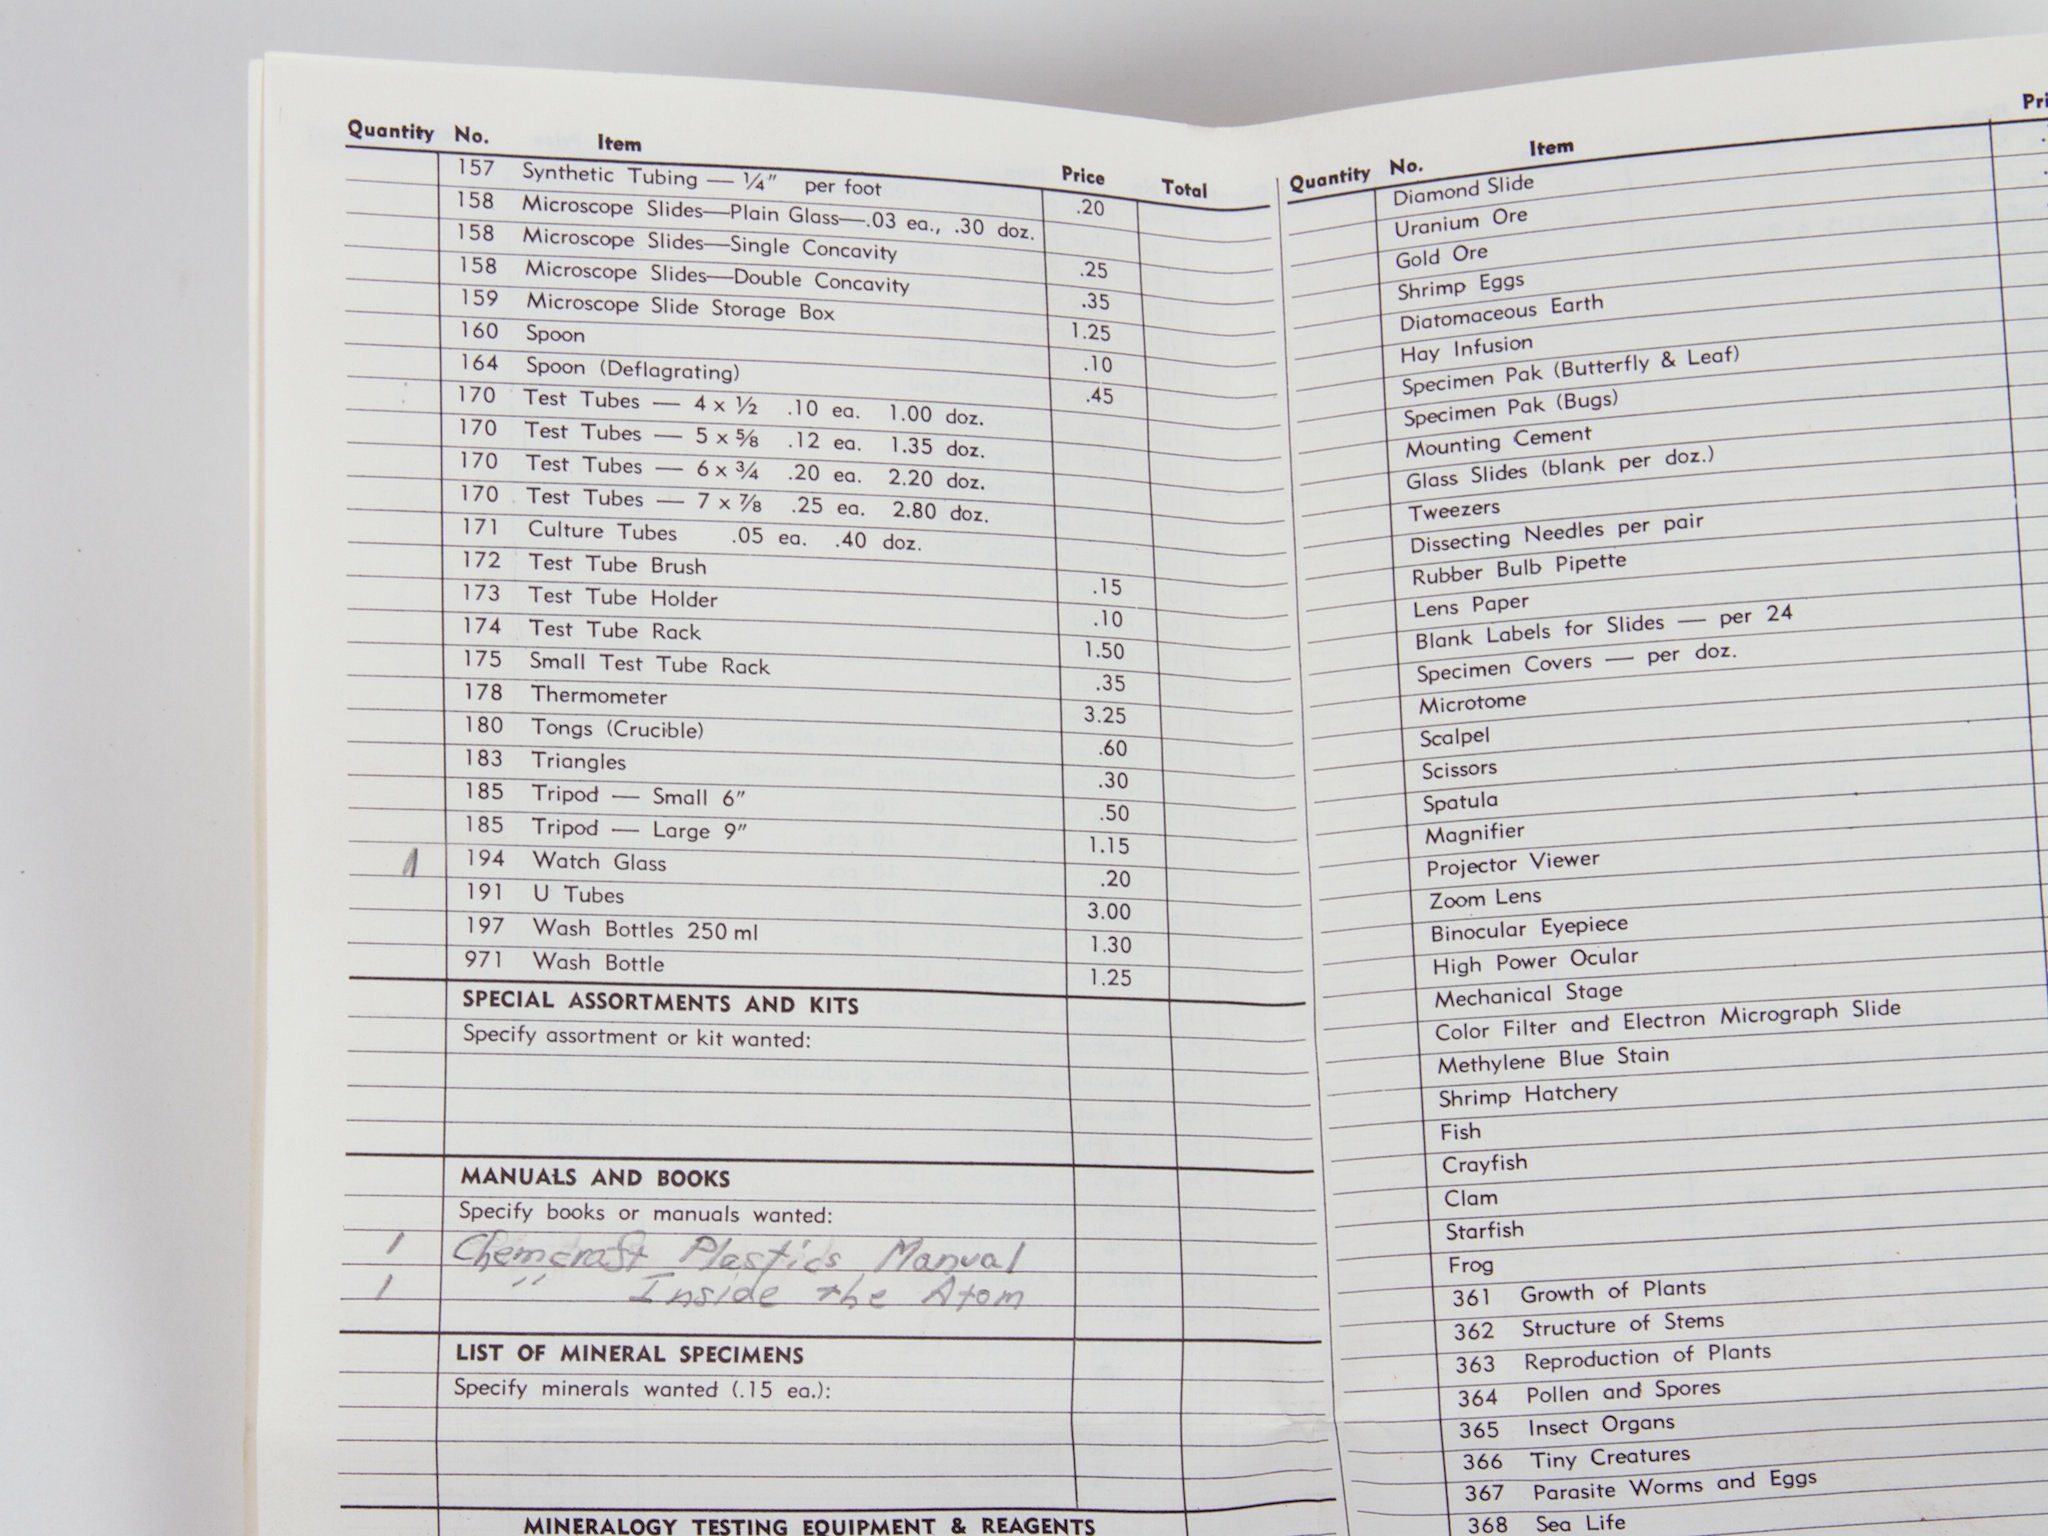 Quantity No. Item Price Total
157 Synthetic Tubing — ¼″ per foot .20
158 Microscope Slides—Plain Glass—.03 ea., .30 doz.
158 Microscope Slides—Single Concavity .25
158 Microscope Slides—Double Concavity .35
159 Microscope Slide Storage Box 1.25
160 Spoon .10
164 Spoon (Deflagrating) .45
170 Test Tubes — 4 x ½ .10 ea. 1.00 doz.
170 Test Tubes — 5 x ⅝ .12 ea. 1.35 doz.
170 Test Tubes — 6 x ¾ .20 ea. 2.20 doz.
170 Test Tubes — 7 x ⅞ .25 ea. 2.80 doz.
171 Culture Tubes .05 ea. .40 doz.
172 Test Tube Brush .15
173 Test Tube Holder .10
174 Test Tube Rack 1.50
175 Small Test Tube Rack .35
178 Thermometer 3.25
180 Tongs (Crucible) .60
183 Triangles .30
185 Tripod — Small 6″ .50
185 Tripod — Large 9″ 1.15
1 194 Watch Glass .20
191 U Tubes 3.00
197 Wash Bottles 250 ml 1.30
971 Wash Bottle 1.25
SPECIAL ASSORTMENTS AND KITS
Specify assortment or kit wanted:
MANUALS AND BOOKS
Specify books or manuals wanted:
1 Chemcraft Plastics Manual
1 " Inside the Atom
LIST OF MINERAL SPECIMENS
Specify minerals wanted (.15 ea.):
MINERALOGY TESTING EQUIPMENT & REAGENTS
Quantity No. Item
Diamond Slide
Uranium Ore
Gold Ore
Shrimp Eggs
Diatomaceous Earth
Hay Infusion
Specimen Pak (Butterfly & Leaf)
Specimen Pak (Bugs)
Mounting Cement
Glass Slides (blank per doz.)
Tweezers
Dissecting Needles per pair
Rubber Bulb Pipette
Lens Paper
Blank Labels for Slides — per 24
Specimen Covers — per doz.
Microtome
Scalpel
Scissors
Spatula
Magnifier
Projector Viewer
Zoom Lens
Binocular Eyepiece
High Power Ocular
Mechanical Stage
Color Filter and Electron Micrograph Slide
Methylene Blue Stain
Shrimp Hatchery
Fish
Crayfish
Clam
Starfish
Frog
361 Growth of Plants
362 Structure of Stems
363 Reproduction of Plants
364 Pollen and Spores
365 Insect Organs
366 Tiny Creatures
367 Parasite Worms and Eggs
368 Sea Life